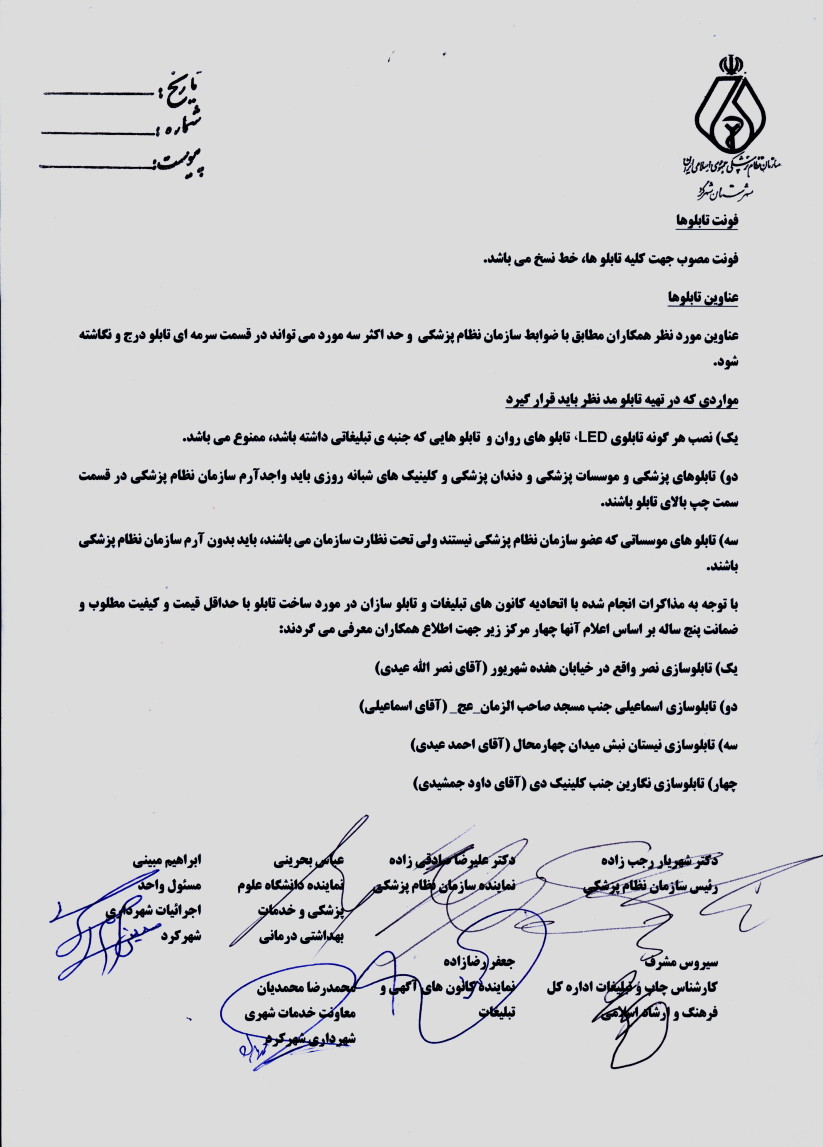 تاریخ:
شماره:
پیوست:
سازمان نظام پزشکی جمهوری اسلامی ایران
شهرستان شهرکرد
فونت تابلوها
فونت مصوب جهت کلیه تابلو ها، خط نسخ می باشد.
عناوین تابلوها
عناوین مورد نظر همکاران مطابق با ضوابط سازمان نظام پزشکی و حد اکثر سه مورد می تواند در قسمت سرمه ای تابلو درج و نگاشته
شود.
مواردی که در تهیه تابلو مد نظر باید قرار گیرد
یک) نصب هر گونه تابلوی LED، تابلو های روان و تابلو هایی که جنبه ی تبلیغاتی داشته باشد، ممنوع می باشد.
دو) تابلوهای پزشکی و موسسات پزشکی و دندان پزشکی و کلینیک های شبانه روزی باید واجدآرم سازمان نظام پزشکی در قسمت
سمت چپ بالای تابلو باشند.
سه) تابلو های موسساتی که عضو سازمان نظام پزشکی نیستند ولی تحت نظارت سازمان می باشند، باید بدون آرم سازمان نظام پزشکی
باشند.
با توجه به مذاکرات انجام شده با اتحادیه کانون های تبلیغات و تابلو سازان در مورد ساخت تابلو با حداقل قیمت و کیفیت مطلوب و
ضمانت پنج ساله بر اساس اعلام آنها چهار مرکز زیر جهت اطلاع همکاران معرفی می گردند:
یک) تابلوسازی نصر واقع در خیابان هفده شهریور (آقای نصر الله عیدی)
دو) تابلوسازی اسماعیلی جنب مسجد صاحب الزمان_عج_ (آقای اسماعیلی)
سه) تابلوسازی نیستان نبش میدان چهارمحال (آقای احمد عیدی)
چهار) تابلوسازی نگارین جنب کلینیک دی (آقای داود جمشیدی)
دکتر شهریار رجب زاده
رئیس سازمان نظام پزشکی
دکتر علیرضا صادقی زاده
نماینده سازمان نظام پزشکی
عباس بحرینی
نماینده دانشگاه علوم
پزشکی و خدمات
بهداشتی درمانی
ابراهیم مبینی
مسئول واحد
اجرائیات شهرداری
شهرکرد
سیروس مشرف
کارشناس چاپ و تبلیغات اداره کل
فرهنگ و ارشاد اسلامی
جعفر رضازاده
نماینده کانون های آگهی و
تبلیغات
محمدرضا محمدیان
معاونت خدمات شهری
شهرداری شهرکرد